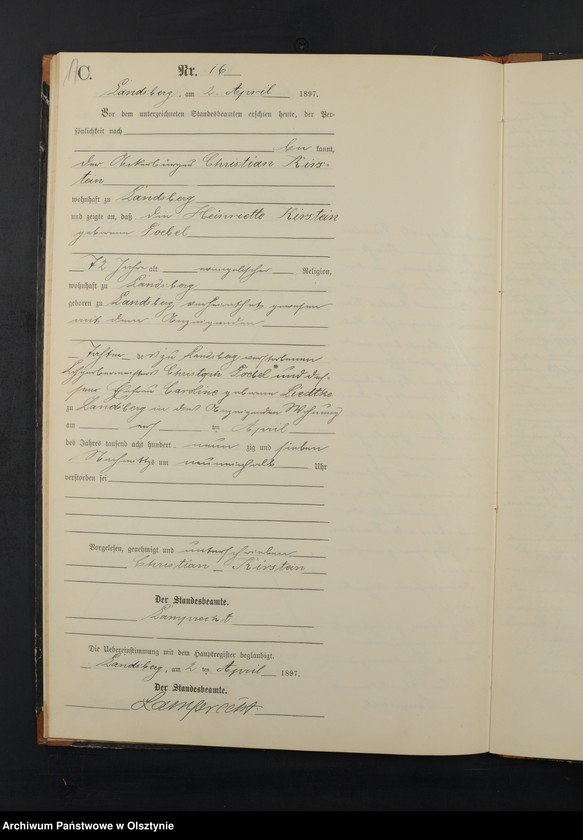 C.
Nr. 16
Landsberg, am 2. April 1897.
Vor dem unterzeichneten Standesbeamten erschien heute, der Per-
sönlichkeit nach
be kannt,
der Ackerbürger Christian Kirs-
tein
wohnhaft zu Landsberg
und zeigte an, daß die Heinriette Kirstein
geborene Poebel
72 Jahre alt evangelischer Religion,
wohnhaft zu Landsberg
geboren zu Landsberg, verheirathet gewesen
mit dem Anzeigenden
Tochter des zu Landsberg verstorbenen
Christoph Poebel und des-
sen Ehefrau Caroline geborene Liedtke
zu Landsberg in des Anzeigenden Wohnung
am ersten April
des Jahres tausend acht hundert neun zig und sieben
Nachmittags um neuneinhalb Uhr
verstorben sei
Vorgelesen, genehmigt und unterschrieben
Christian Kirstein
Der Standesbeamte.
Lamprecht
Die Uebereinstimmung mit dem Hauptregister beglaubigt.
Landsberg, am 2 ten April 1897.
Der Standesbeamte.
Lamprecht
Archiwum Państwowe w Olsztynie